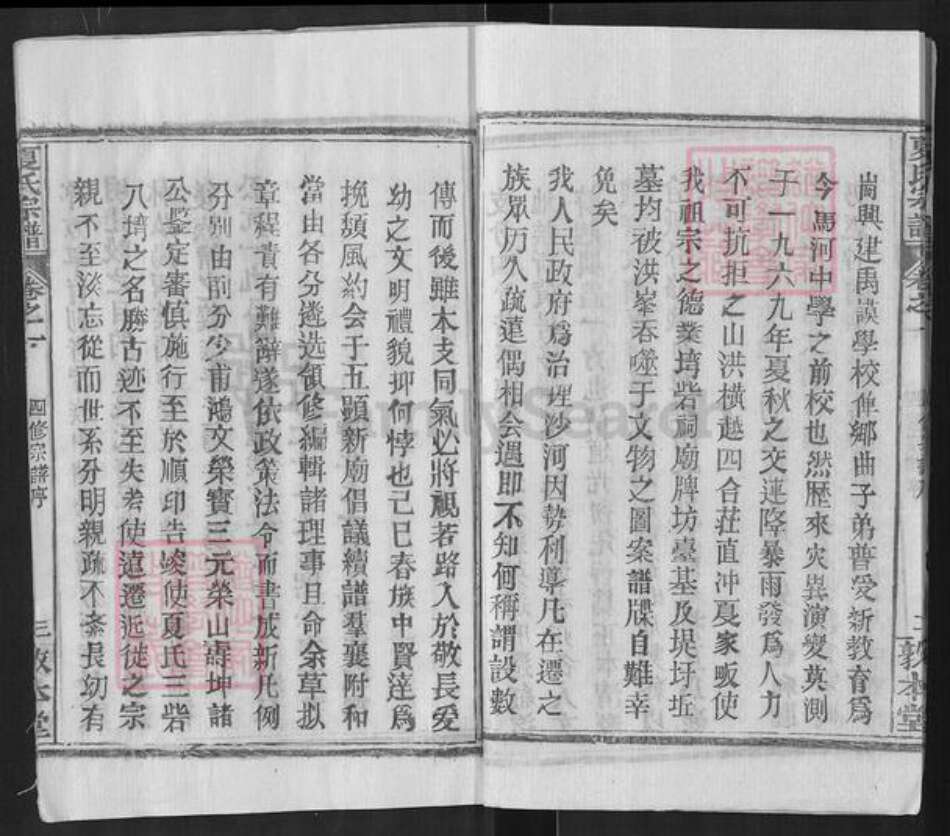 夏氏宗譜
卷之一
敦本堂
崗興建禹謨學校俾鄉曲子弟普受新教育爲
今馮河中學之前校也然歷來灾異演變莫測
于一九六九年夏秋之交連降暴雨發爲人力
不可抗拒之山洪橫越四合莊直冲夏家畈使
我祖宗之德業塆砦祠廟牌坊臺基及堤圩坵
墓均被洪峯吞噬于文物之圖案譜牒自難幸
免矣
我人民政府爲治理沙河因勢利導凡在遷之
族眾历久疏遠偶相会遇即不知何稱謂設數
傳而後雖本支同氣必將視若路人於敬長爱
幼之文明禮貌抑何悖也己巳春族中賢達爲
挽頹風約会于五顯新廟倡議續譜羣襄附和
當由各分遴选領修編輯諸理事且命余草拟
章程責有難辭遂依政策法令而書成新凡例
分别由前分少甫鴻文榮實三元榮山壽坤諸
公鉴定審慎施行至於順印告竣使夏氏三砦
八塆之名勝古迹不至失考使遠遷近徙之宗
親不至淡忘從而世系分明親疏不紊長幼有
夏氏宗譜
卷之一
四修宗譜序
三
敦本堂